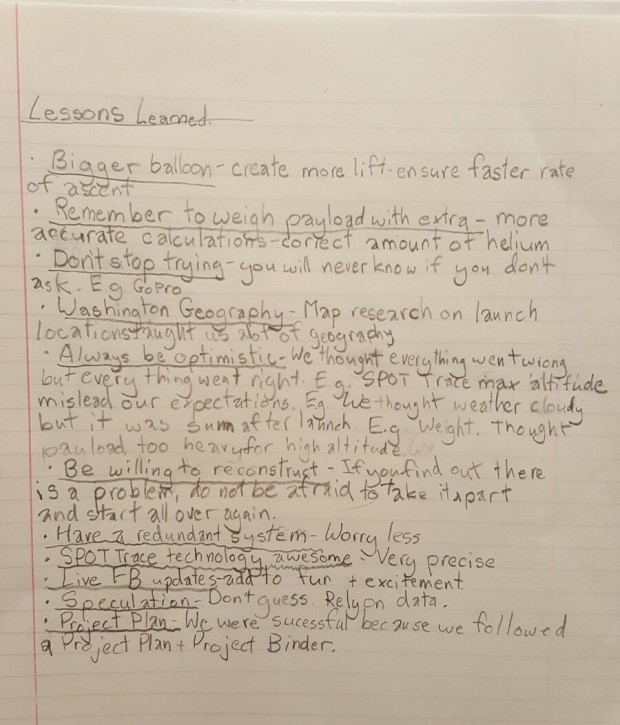 Lessons Learned.
· Bigger balloon - create more lift - ensure faster rate
of ascent
· Remember to weigh payload with extra - more
accurate calculations - correct amount of helium
· Don't stop trying - you will never know if you don't
ask. Eg GoPro
· Washington Geography - Map research on launch
locations taught us alot of geography
· Always be optimistic - We thought everything went wrong
but every thing went right. Eg. SPOT Trace max altitude
mislead our expectations. Eg. We thought weather cloudy
but it was sunn after launch. E.g. Weight. Thought
payload too heavy for high altitude.
· Be willing to reconstruct - If you find out there
is a problem, do not be afraid to take it apart
and start all over again.
· Have a redundant system - Worry less
· SPOT Trace technology awesome - Very precise
· Live FB updates - add to fun + excitement
· Speculation - Dont guess. Rely on data.
· Project Plan - We were sucessful because we followed
a Project Plan + Project Binder.